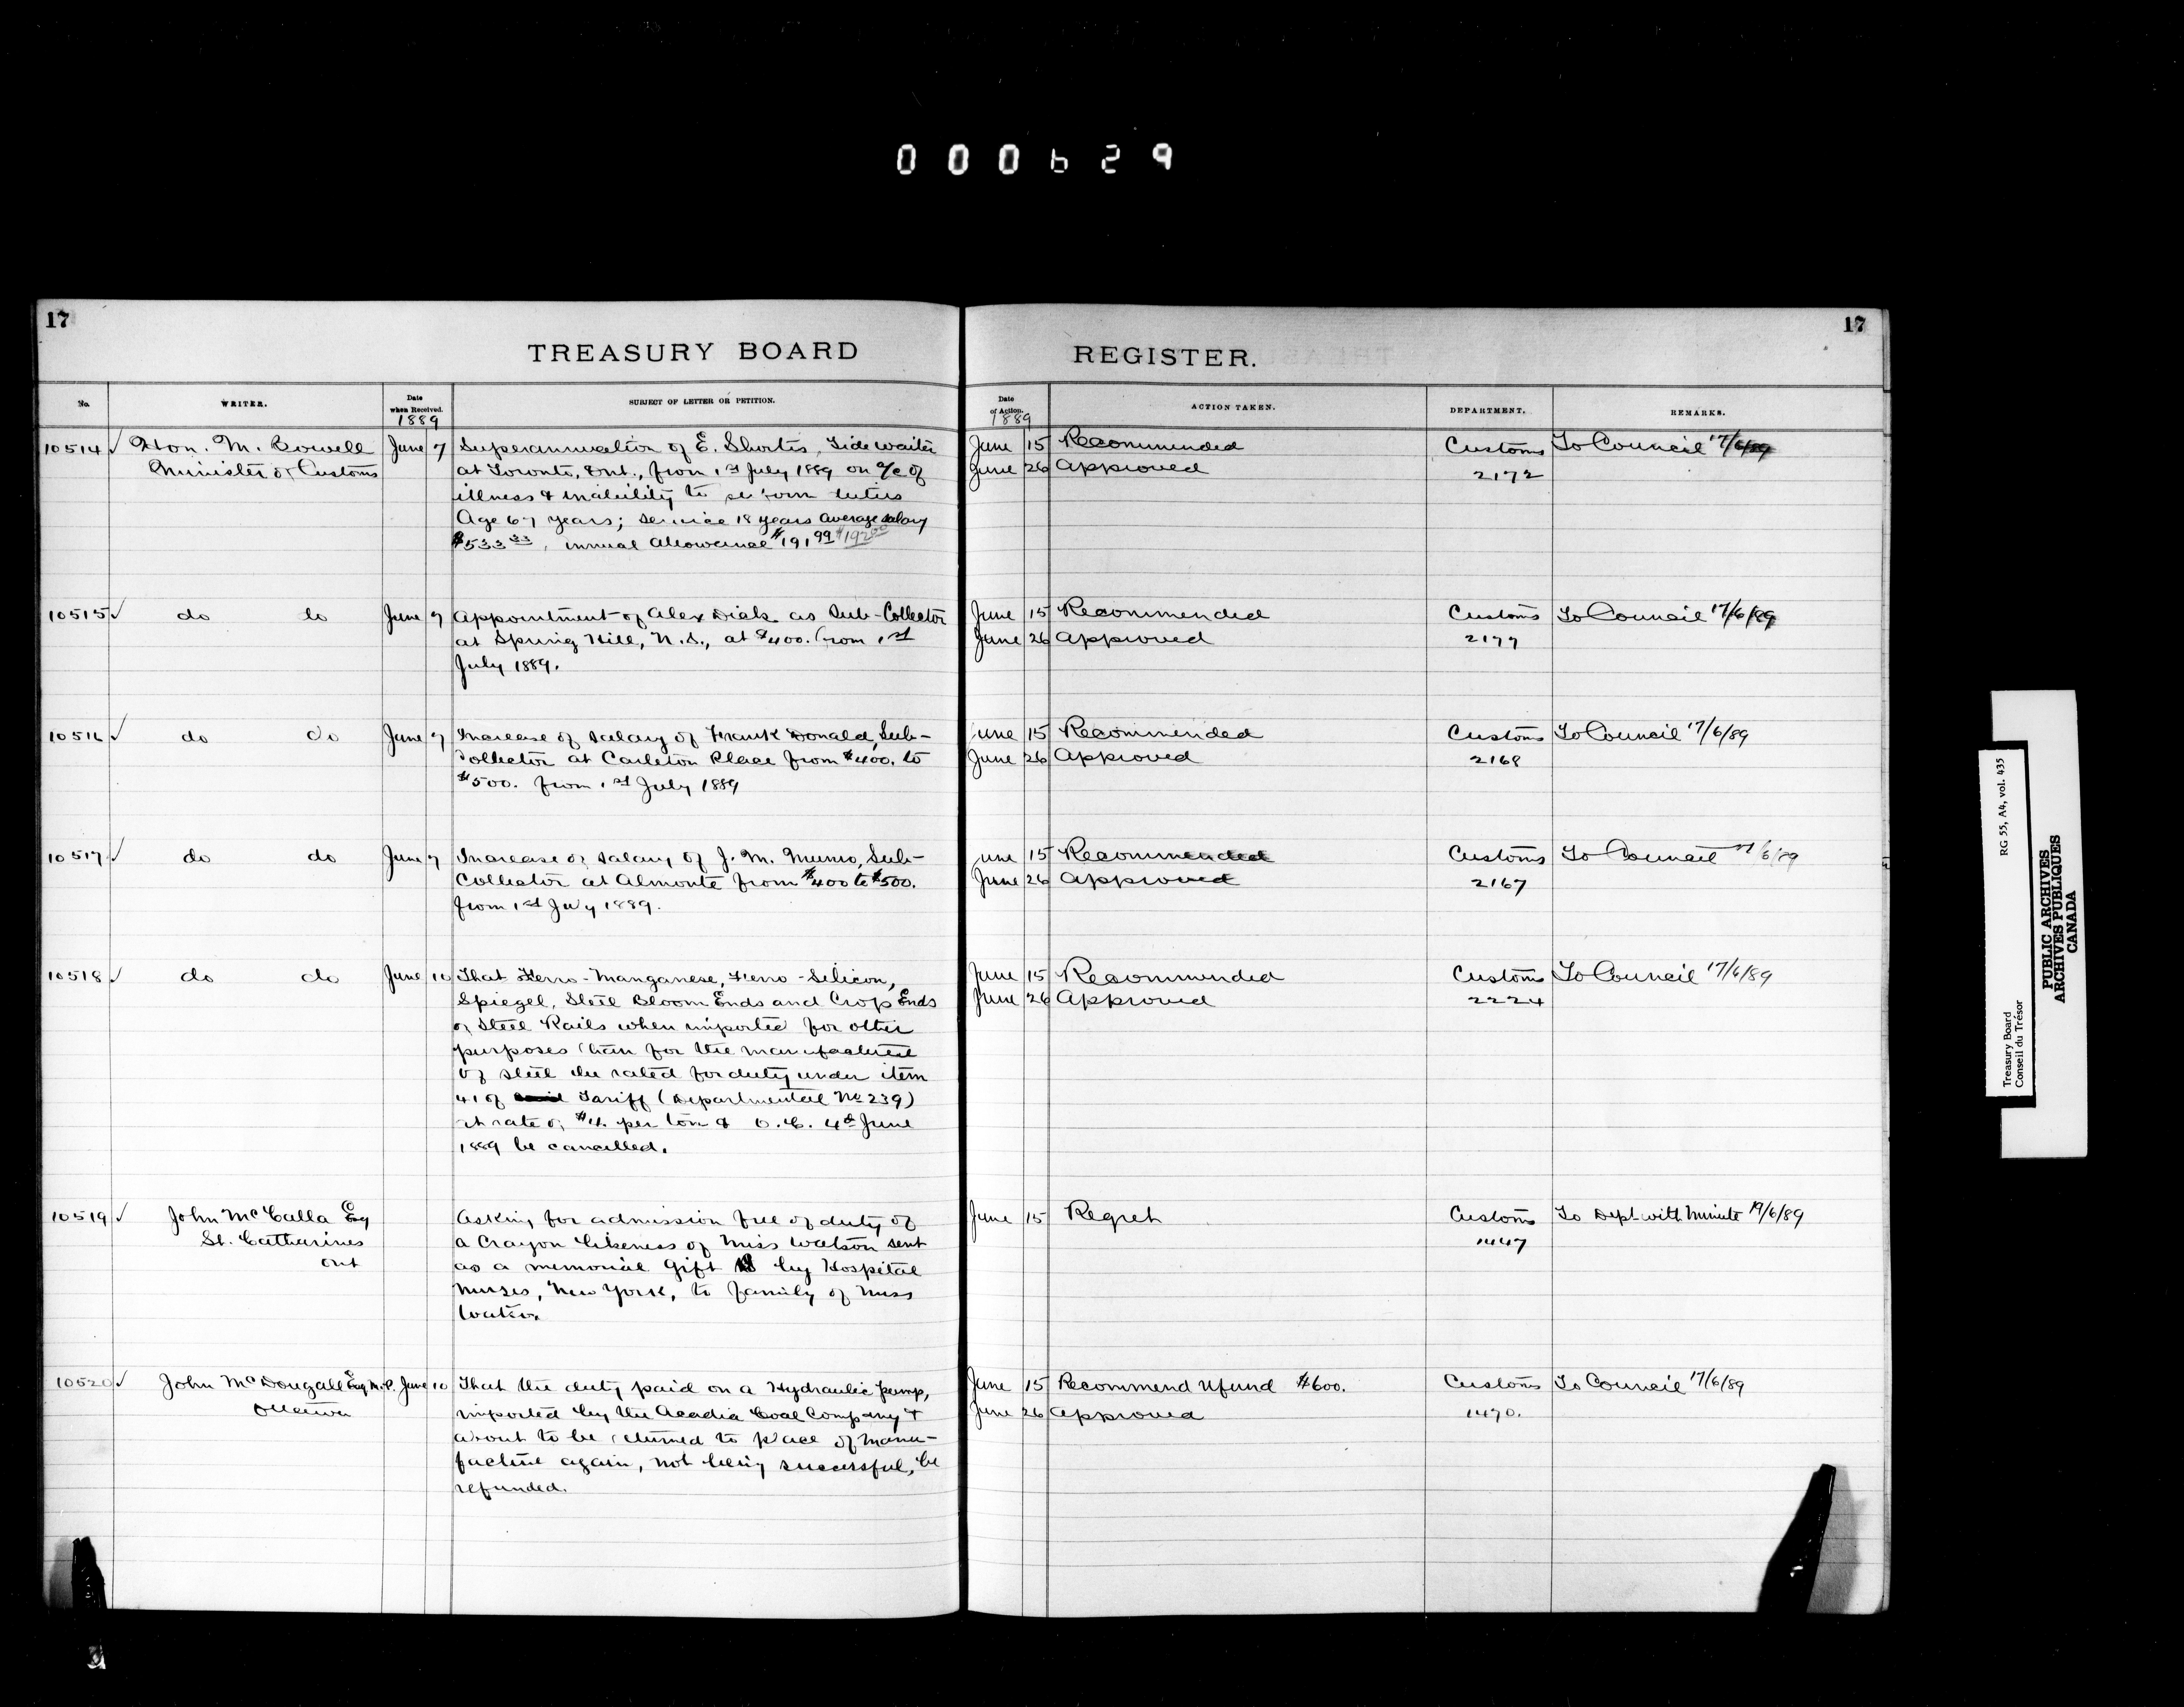 000629
17
17
TREASURY BOARD
REGISTER.
No.
WRITER.
Date when Received.
1889
SUBJECT OF LETTER OR PETITION.
Date of Action.
1889
ACTION TAKEN.
DEPARTMENT.
REMARKS.
10514 ✓ Hon. M. Bowell June 7 Superannuation of E. Shortis, Tide waiter June 15 Recommended Customs To Council 17/6/89
Minister of Customs at Toronto, Ont., from 1st July 1889 on a/c of June 26 Approved 2172
illness & inability to perform duties
Age 67 years; service 18 years average salary
$533 33, annual allowance $191 99 $192 00
10515 ✓ do do June 7 Appointment of Alex Dick as Sub-Collector June 15 Recommended Customs To Council 17/6/89
at Spring Hill, N.S., at $400. from 1st June 26 Approved 2177
July 1889.
10516 ✓ do do June 7 Increase of salary of Frank Donald, Sub- June 15 Recommended Customs To Council 17/6/89
Collector at Carleton Place from $400. to June 26 Approved 2168
$500. from 1st July 1889
10517 ✓ do do June 7 Increase of salary of J. M. Munro, Sub- June 15 Recommended Customs To Council 17/6/89
Collector at Almonte from $400 to $500. June 26 Approved 2167
from 1st July 1889.
10518 ✓ do do June 10 That Ferro-Manganese, Ferro-Silicon, June 15 Recommended Customs To Council 17/6/89
Spiegel, Steel Bloom Ends and Crop Ends June 26 Approved 2224
of Steel Rails when imported for other
purposes than for the manufacture
of steel be rated for duty under item
41 of Tariff (Departmental No 239)
at rate of $4. per ton & O.C. 4th June
1889 be cancelled.
10519 ✓ John McCalla Esq Asking for admission free of duty of June 15 Regret Customs To Dept with Minute 19/6/89
St. Catharines a Crayon likeness of Miss Watson sent 1447
Ont as a memorial gift by Hospital
Nurses, New York, to family of Miss
Watson.
10520 ✓ John McDougall Esq M.P. June 10 That the duty paid on a Hydraulic pump, June 15 Recommend refund $600. Customs To Council 17/6/89
Ottawa imported by the Acadia Coal Company & June 26 Approved 1470.
about to be returned to place of manu-
facture again, not being successful, be
refunded.
Treasury Board
Conseil du Trésor
RG 55, A4, vol. 435
PUBLIC ARCHIVES
ARCHIVES PUBLIQUES
CANADA